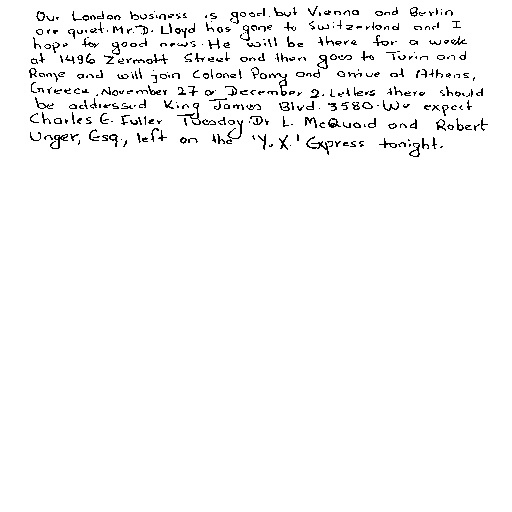 Our London business is good, but Vienna and Berlin
are quiet. Mr. D. Lloyd has gone to Switzerland and I
hope for good news. He will be there for a week
at 1496 Zermott Street and then goes to Turin and
Rome and will join Colonel Parry and arrive at Athens,
Greece, November 27 or December 2. Letters there should
be addressed King James Blvd. 3580. We expect
Charles E. Fuller Tuesday. Dr L. McQuaid and Robert
Unger, Esq., left on the 'Y. X.' Express tonight.